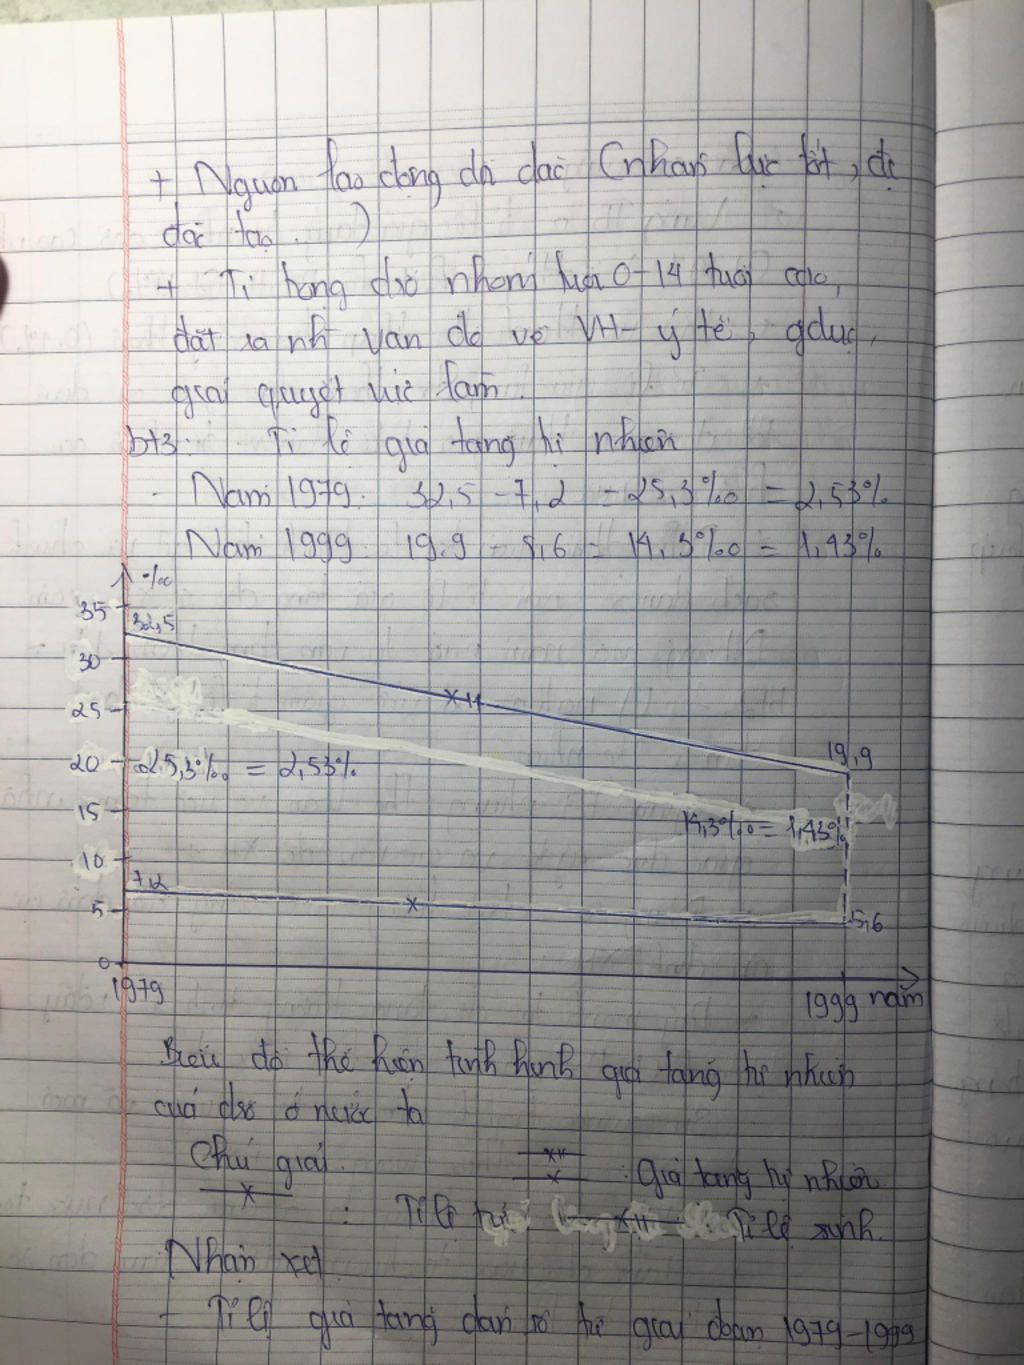 + Nguồn lao động dồi dào (nhân lực tốt, dự
dốc tạo..)
+ Tỉ trọng dsố nhóm tuổi 0-14 tuổi cao,
đặt ra nh vấn đề về VH- y tế, gdục,
giải quyết việc làm.
bt3: Tỉ lệ gia tăng tự nhiên
- Năm 1979: 32,5 - 7,2 = 25,3‰ = 2,53%
- Năm 1999: 19,9 - 5,6 = 14,3‰ = 1,43%
‰
35
32,5
30
25
19,9
20
25,3‰ = 2,53%
15
14,3‰ = 1,43%
10
7,2
5
5,6
0
1979
1999 năm
Biểu đồ thể hiện tình hình gia tăng tự nhiên
của dsố ở nước ta
Chú giải
: Gia tăng tự nhiên
: Tỉ lệ tử
: Tỉ lệ sinh.
Nhận xét
- Tỉ lệ gia tăng dân số từ giai đoạn 1979-1999